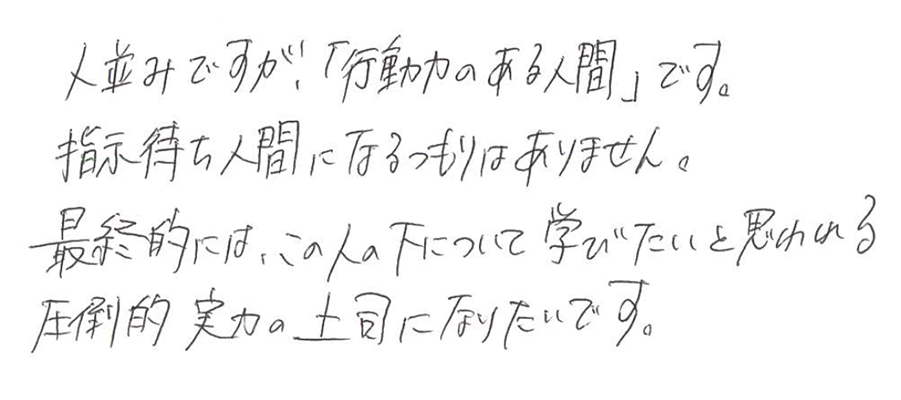 人並みですが、「行動力のある人間」です。
指示待ち人間になるつもりはありません。
最終的には、この人の下について学びたいと思われる
圧倒的実力の上司になりたいです。